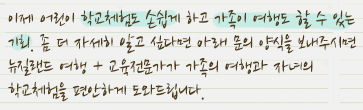 이제 어린이 학교체험도 손쉽게 하고 가족이 여행도 할 수 있는
기회. 좀 더 자세히 알고 싶다면 아래 문의 양식을 보내주시면
뉴질랜드 여행 + 교육전문가가 가족의 여행과 자녀의
학교체험을 편안하게 도와드립니다.